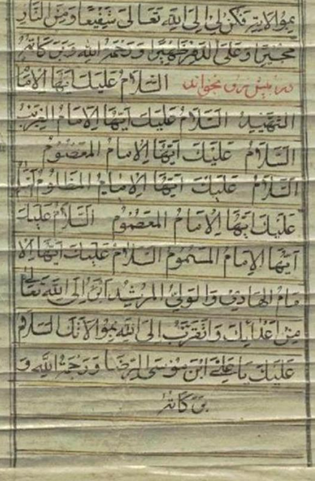 بموالاتهم فكن لي الى الله تعالى شفيعا ومن النار
مجيرا وعلى الدهر ظهيرا ورحمة الله وبركاته
در پیش رو بخواند السلام عليك ايها الاما
الشهيد السلام عليك ايها الامام الغريب
السلام عليك ايها الامام المعصوم
السلام عليك ايها الامام المظلوم
عليك ايها الامام المعصوم السلام عليك
ايها الامام المسموم السلام عليك ايها الا
مام الهادي والولي المرشد ابرأ الى الله تعا
من اعدائك واتقرب الى الله بموالاتك السلام
عليك يا علي ابن موسى الرضا ورحمة الله و
بركاته